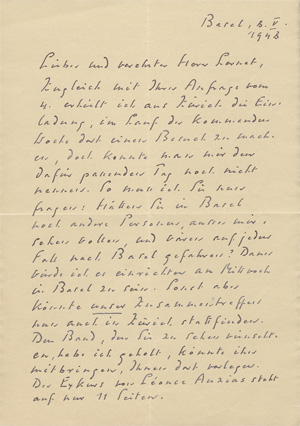 Basel, 6. V.
1948
Lieber und verehrter Herr
Zugleich mit Ihrer Anfrage vom
4. erhielt ich aus Zürich die Ein-
ladung, im Lauf der kommenden
Woche dort einen Besuch zu mach-
en, doch konnte man mir den
dafür passenden Tag noch nicht
nennen. So muss ich Sie nun
fragen: Hätten Sie in Basel
noch andere Personen, ausser mir,
sehen wollen, und wären auf jeden
Fall nach Basel gefahren? Dann
würde ich es einrichten am Mittwoch
in Basel zu sein. Sonst aber
könnte unser Zusammentreffen
nun auch in Zürich stattfinden.
Den Band, den Sie zu sehen wünscht-
en, habe ich geholt, könnte ihn
mitbringen, Ihnen dort vorlegen.
Der Exkurs von Léonce Auxias steht
auf nur 11 Seiten.